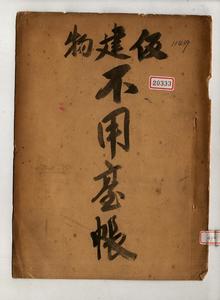 仮建物
不用臺帳
20333